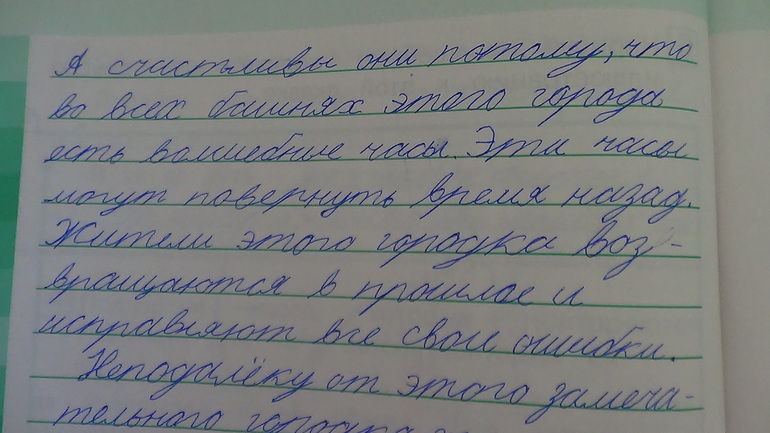 А счастливы они потому, что
во всех башнях этого города
есть волшебные часы. Эти часы
могут повернуть время назад.
Жители этого городка воз-
вращаются в прошлое и
исправляют все свои ошибки.
Неподалёку от этого замеча-
тельного городка